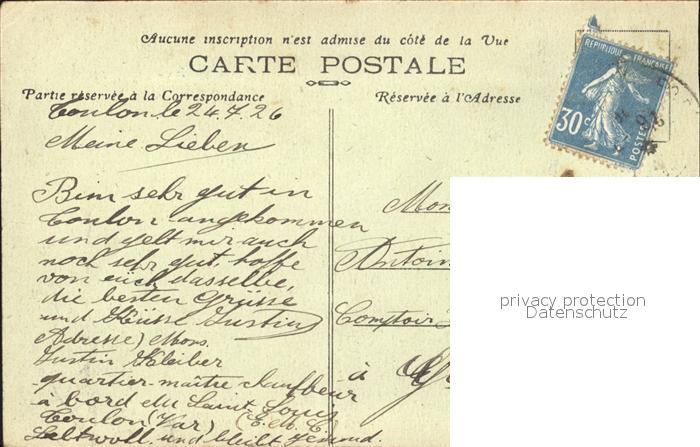 Aucune inscription n'est admise du côté de la Vue
CARTE POSTALE
Partie réservée à la Correspondance
Réservée à l'Adresse
RÉPUBLIQUE FRANÇAISE
30c
POSTES
Toulon le 24.7.26
Meine Lieben
Bim sehr gut in
Toulon angekommen
und gelt mir auch
noch sehr gut, hoffe
von eüch dasselbe,
die besten Grüsse
und Küsse Justin
Adresse) Mons.
Justin Kleiber
quartier-maître chauffeur
à bord du Saint-Louis
Toulon (Var)
Lebtwoll und bleibt gesund.
Mon
Antoin
Comptoir
à
privacy protection
Datenschutz